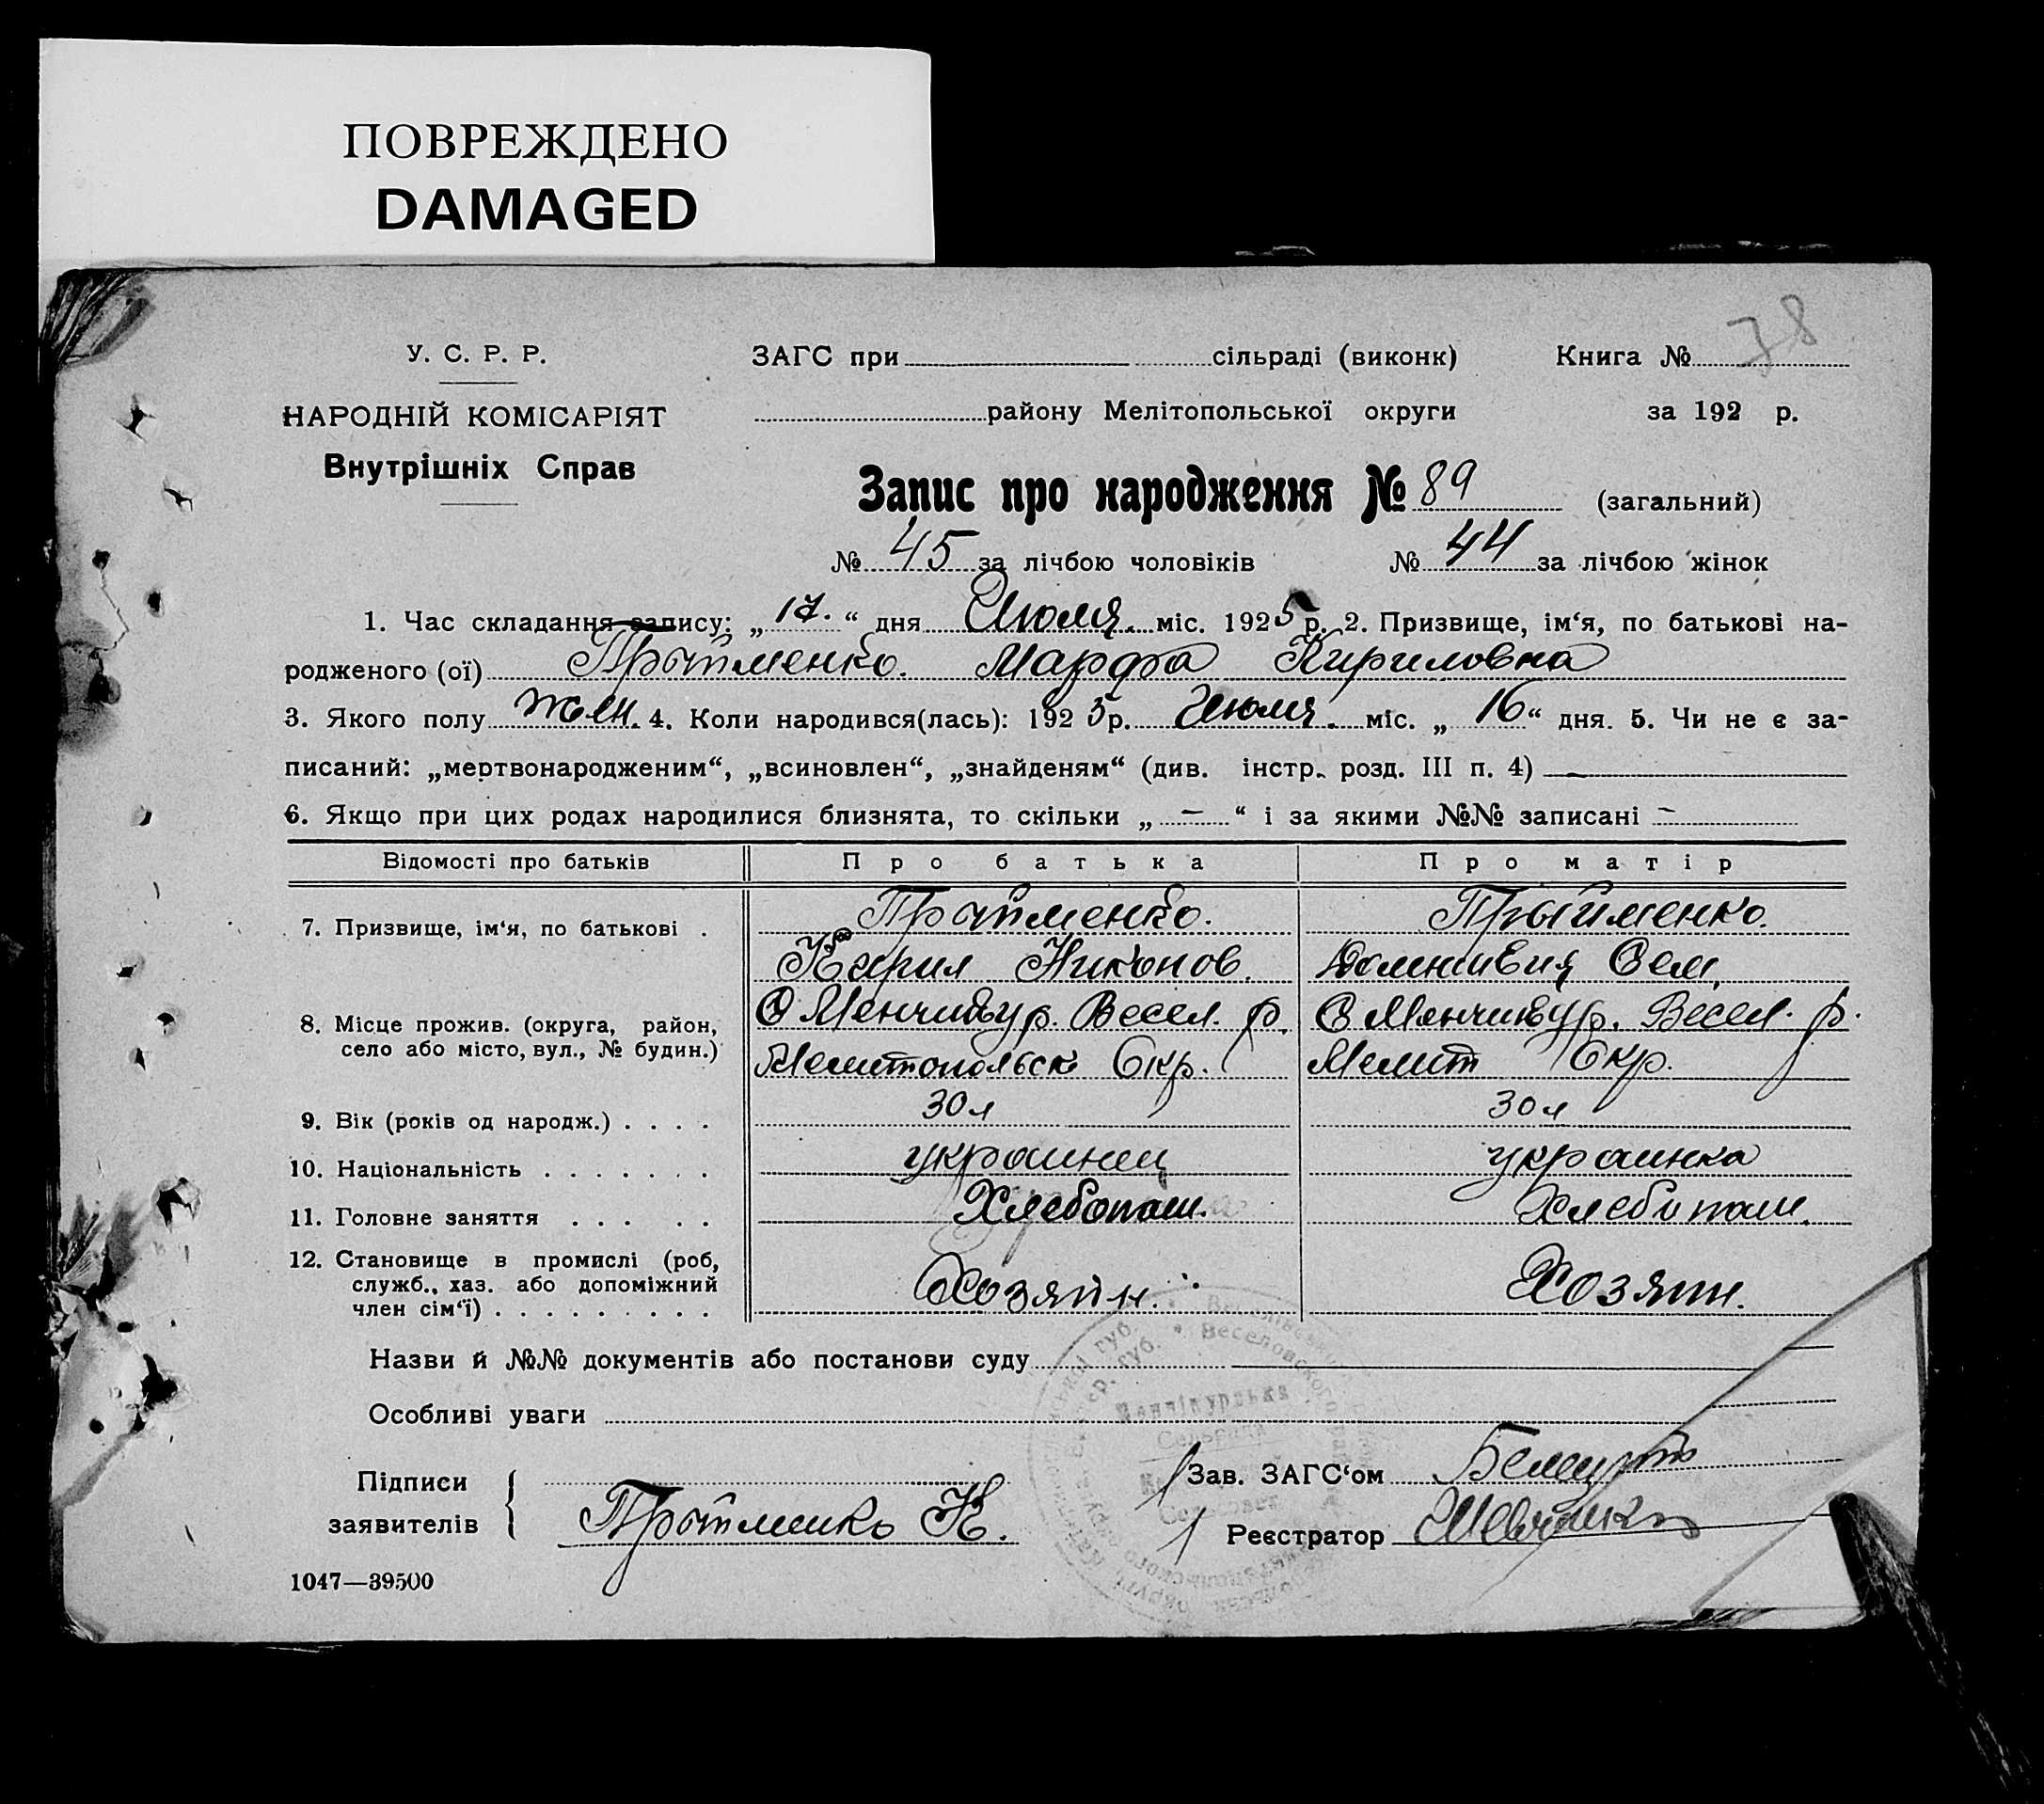 ПОВРЕЖДЕНО
DAMAGED
78
У. С. Р. Р.
ЗАГС при сільраді (виконк)
Книга №
НАРОДНІЙ КОМІСАРІЯТ
району Мелітопольської округи
за 192 р.
Внутрішніх Справ
Запис про народження № 89 (загальний)
№ 45 за лічбою чоловіків № 44 за лічбою жінок
1. Час складання запису: „17.“ дня Июля. міс. 1925 р. 2. Призвище, ім‘я, по батькові на-
родженого (ої) Прыйменко. Марфа Кириловна
3. Якого полу жен. 4. Коли народився(лась): 1925 р. Июля. міс. „16“ дня. 5. Чи не є за-
писаний: „мертвонародженим“, „всиновлен“, „знайденям“ (див. інстр. розд. III п. 4) —
6. Якщо при цих родах народилися близнята, то скільки „ — “ і за якими №№ записані —
Відомості про батьків Про батька Про матір
7. Призвище, ім‘я, по батькові . Прыйменко. Прыйменко.
Кирил Никонов. Сем.
8. Місце прожив. (округа, район, С Менчикур. Весел. р. С Менчикур. Весел. р.
село або місто, вул., № будин.) Мелитопольск Окр. Мелит Окр.
9. Вік (років од народж.) . . . . 30 л 30 л
10. Національність . . . . . . . украинец украинка
11. Головне заняття . . . . . Хлебопаш. Хлебопаш.
12. Становище в промислі (роб,
служб., хаз. або допоміжний Хозяйн. Хозяйн.
член сім‘ї) . . . . . . . . .
Назви й №№ документів або постанови суду
Особливі уваги
Підписи
заявителів
Прыйменко К.
Зав. ЗАГС‘ом
Реєстратор
1047—39500